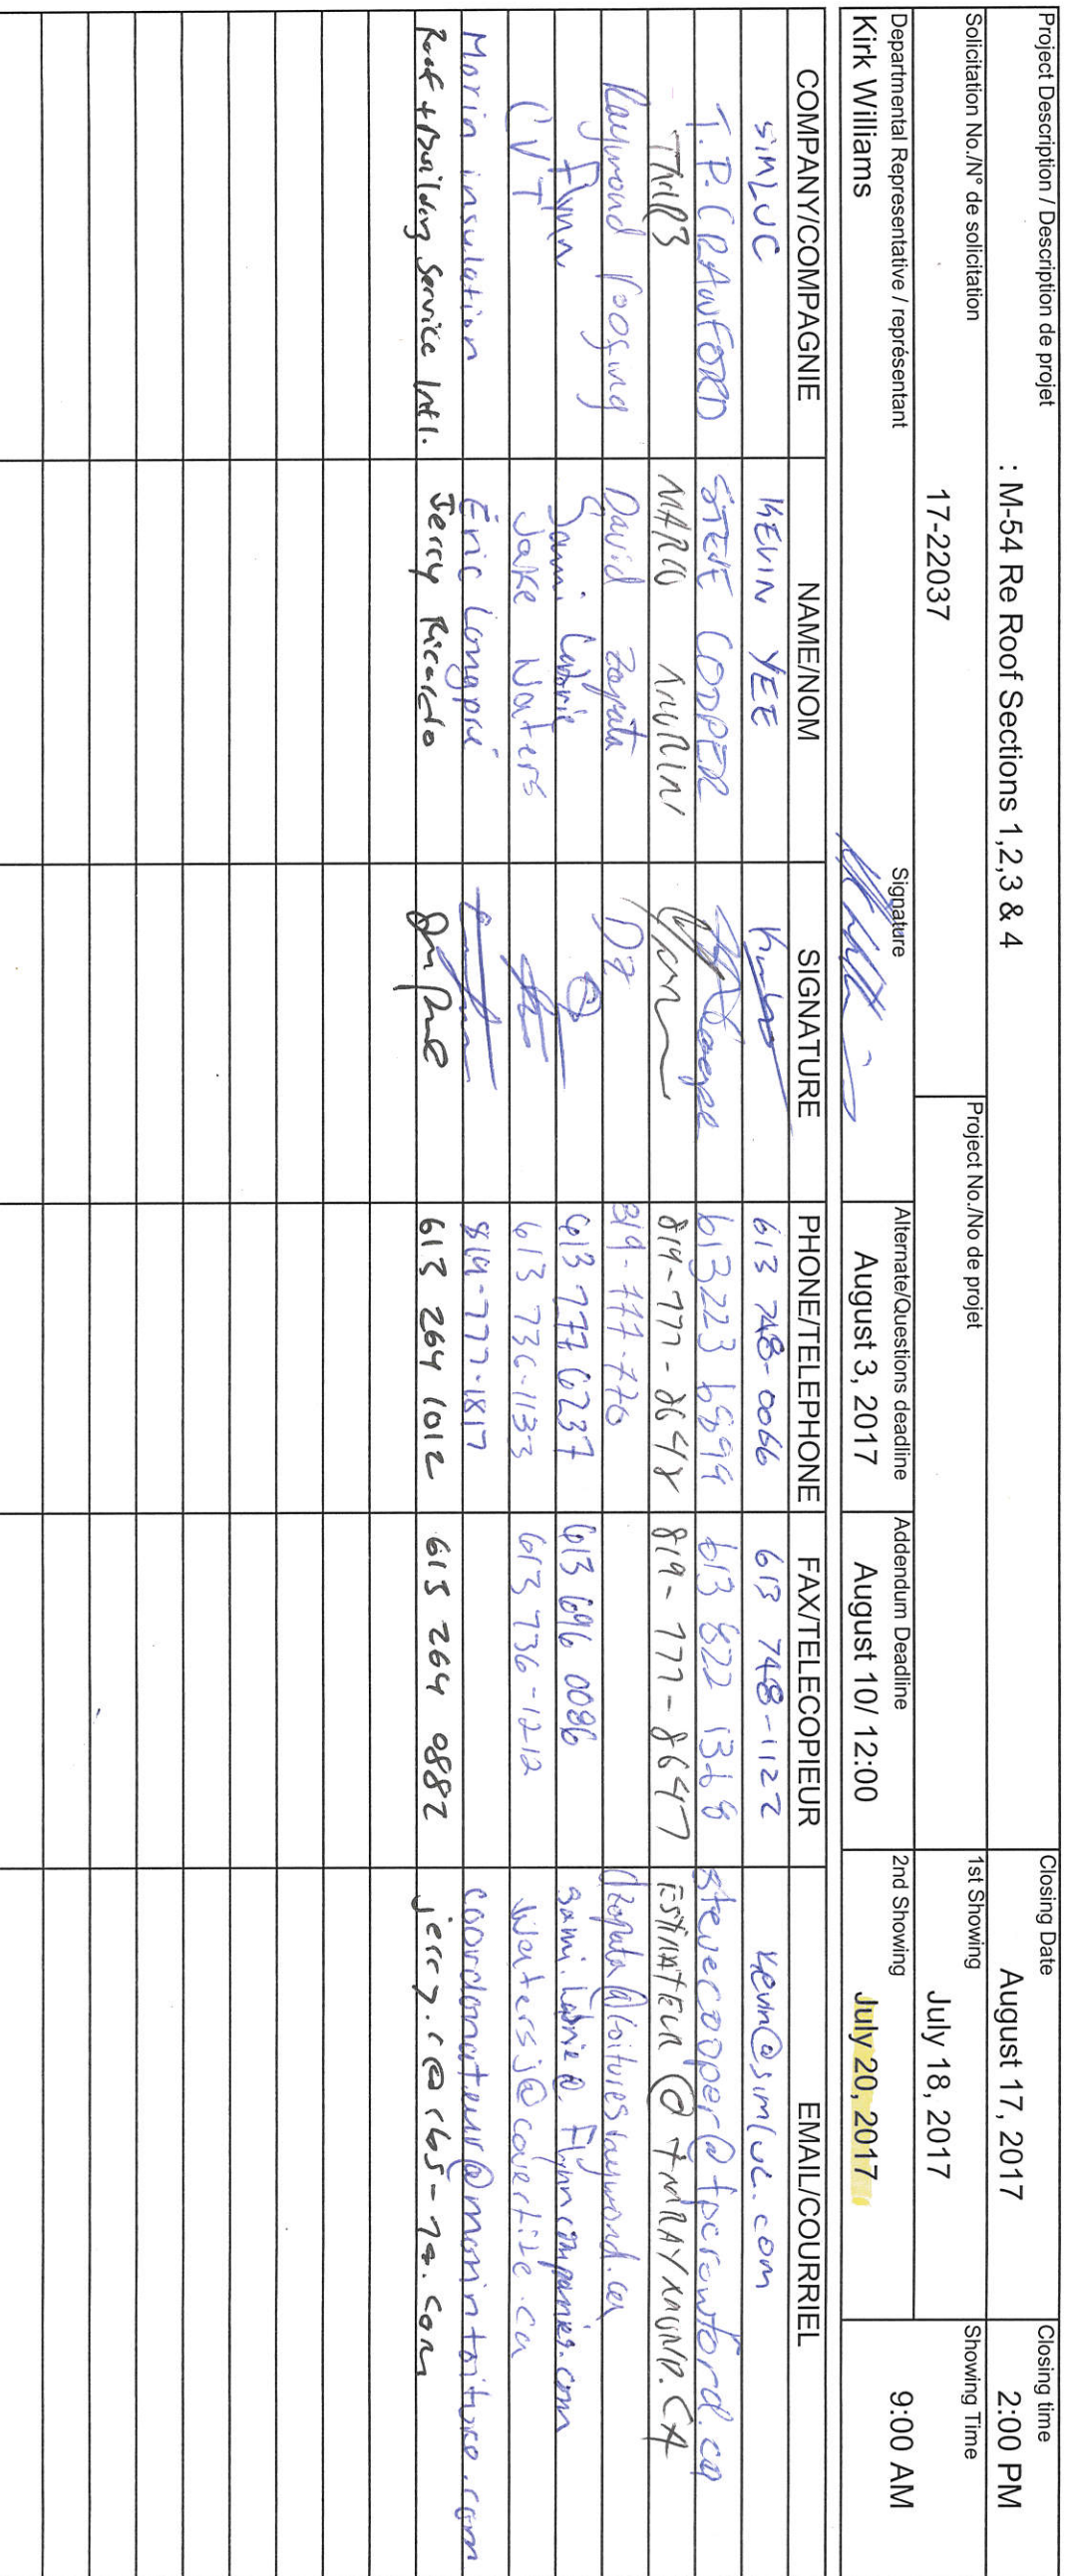 Project Description / Description de projet
: M-54 Re Roof Sections 1,2,3 & 4
Closing Date
August 17, 2017
Closing time
2:00 PM
Solicitation No./N° de solicitation
17-22037
Project No./No de projet
1st Showing
July 18, 2017
Showing Time
9:00 AM
Departmental Representative / représentant
Kirk Williams
Signature
Alternate/Questions deadline
August 3, 2017
Addendum Deadline
August 10/ 12:00
2nd Showing
July 20, 2017
COMPANY/COMPAGNIE NAME/NOM SIGNATURE PHONE/TELEPHONE FAX/TELECOPIEUR EMAIL/COURRIEL
SIMLUC KEVIN YEE 613 748-0066 613 748-1122 Kevin@simluc.com
T.P. CRAWFORD STEVE COOPER 613 223 6899 613 822 1368 stevecooper@tpcrawford.ca
819-777-8648 819-777-8647 ESTIMATEUR @
Raymond David Zapata DZ
Flynn Sami 613 777 6237 613 696 0086 Flynncompanies.com
CVT Jake Waters 613 736-1133 613 736-1212 Watersj@covertite.ca
Morin insulation Éric Longpré 819-777-1817
Roof + Building Service Intl. Jerry Ricardo 613 264 1012 613 264 0882